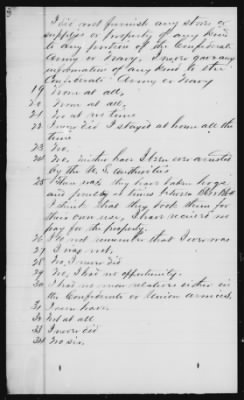 I did not furnish any store or
supplies or property of any kind
to any portion of the Confederate
Army or Navy. I never gave any
information of any kind to the
Confederate Army or Navy
19 None at all,
20 None at all,
21 No at no time
22 I never did I stayed at home all the
time
23 No.
24 No, neither have I ever been arrested
by the U.S. Authorities
25 There was, they have taken hogs
and poultry at times
I think that they took them for
their own use, I have received no
pay for the property.
26 I do not remember that I ever was
27 I was not,
28 No, I never did
29 No, I had no opportunity.
30 I had no near relatives either in
the Confederate or Union armies,
31 I never have
32 Not at all
33 I never did
34 No sir.